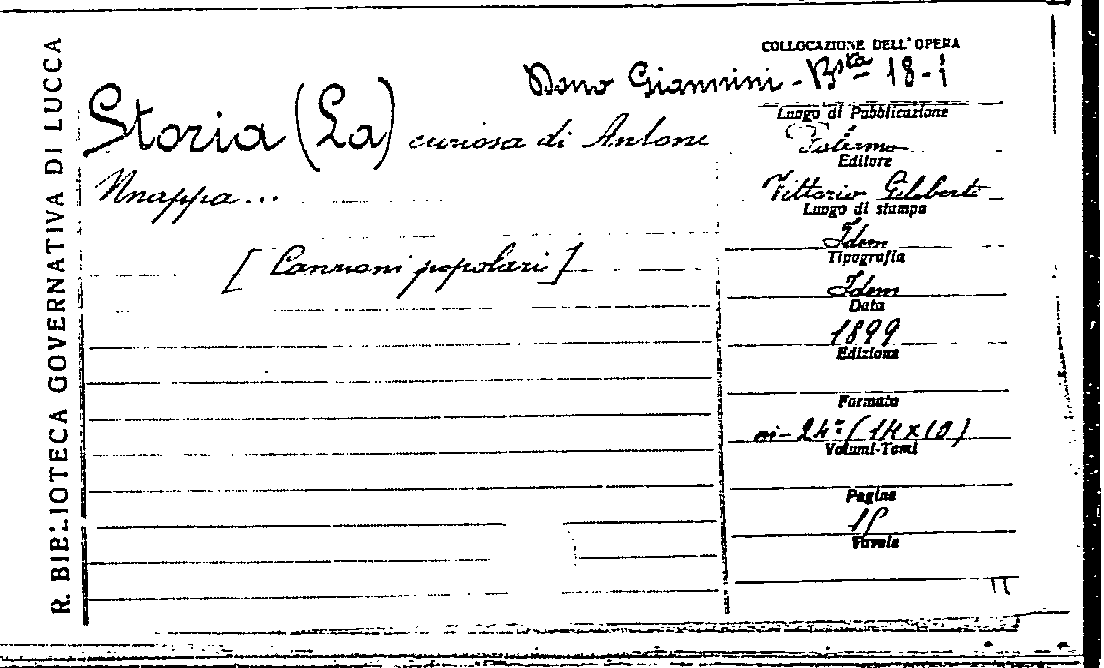 R. BIBLIOTECA GOVERNATIVA DI LUCCA
COLLOCAZIONE DELL'OPERA
Dono Giannini - Bsta 18-1
Storia (La) curiosa di Antone
Nnappa...
[Canzoni popolari]
Luogo di Pubblicazione
Palermo
Editore
Vittorio Giliberti
Luogo di stampa
Idem
Tipografia
Idem
Data
1899
Edizione
Formato
in-24° (14x10)
Volumi-Tomi
Pagine
Tavole